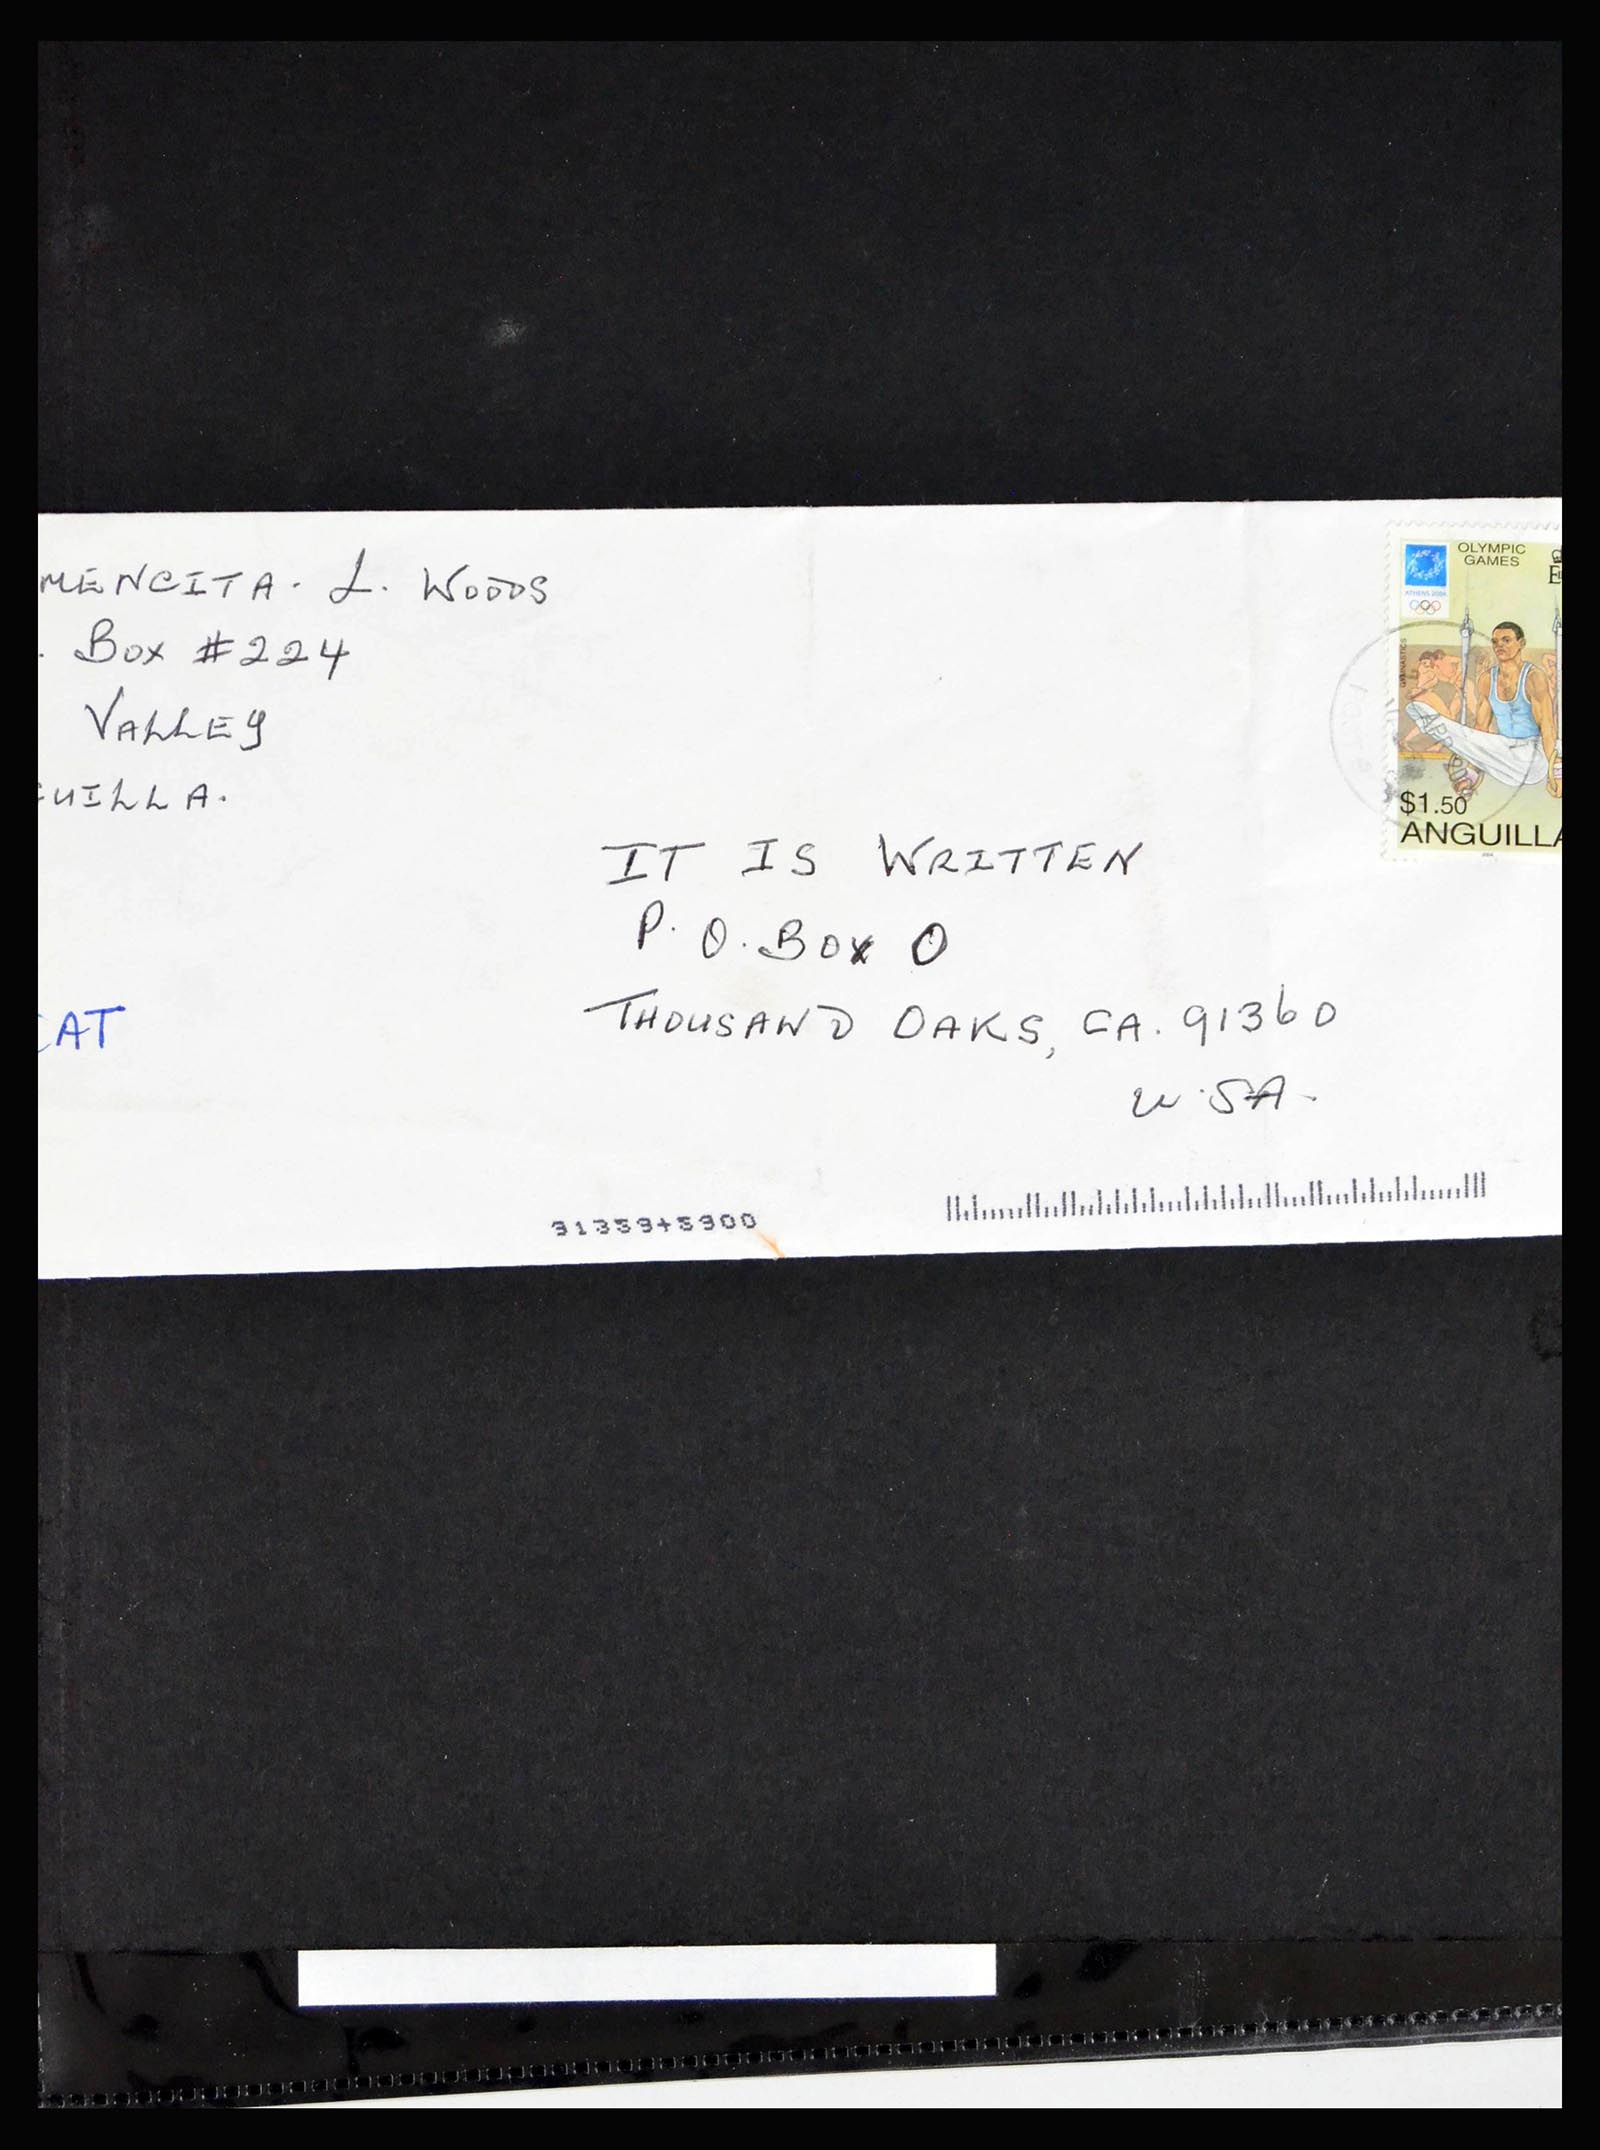 MENCITA. L. WOODS
. BOX #224
VALLEY
UILLA.
CAT
IT IS WRITTEN
P. O. BOX O
THOUSAND OAKS, CA. 91360
U.SA.
91359+5900
OLYMPIC
GAMES
ATHENS 2004
GYMNASTICS
APR
$1.50
ANGUILLA